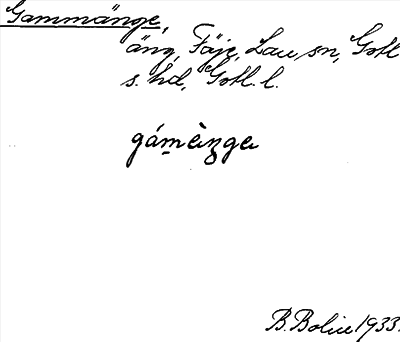 Gammänge,
äng, Fäje, Lau sn, Gotl
s. hd, Gotl. l.
gámènge
B. Bolin 1933.